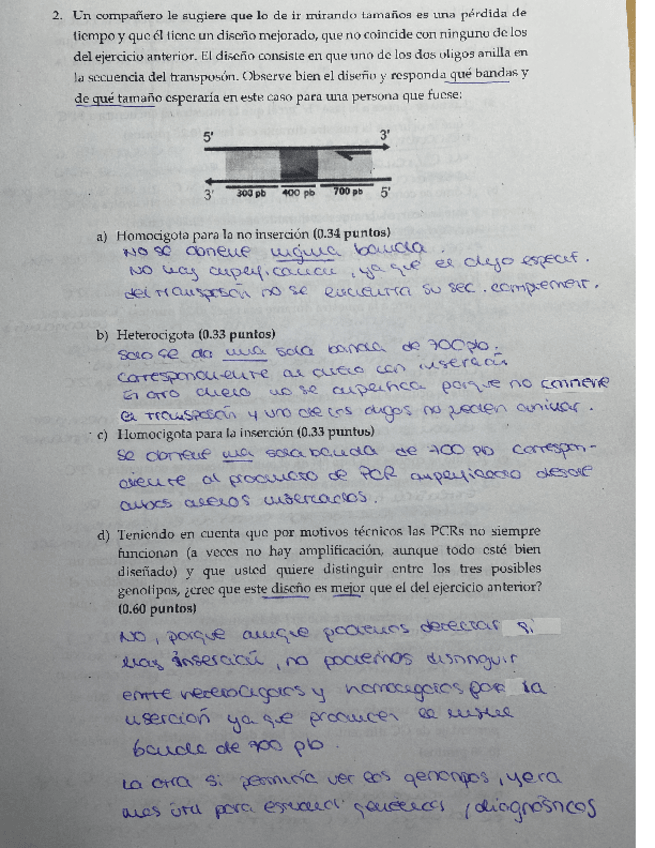 2. Un compañero le sugiere que lo de ir mirando tamaños es una pérdida de
tiempo y que él tiene un diseño mejorado, que no coincide con ninguno de los
del ejercicio anterior. El diseño consiste en que uno de los dos oligos anilla en
la secuencia del transposón. Observe bien el diseño y responda qué bandas y
de qué tamaño esperaría en este caso para una persona que fuese:
5' 3'
3' 300 pb 400 pb 700 pb 5'
a) Homocigota para la no inserción (0.34 puntos)
No se obtiene ninguna banda.
No hay amplificación, ya que el oligo específ.
del transposón no se encuentra su sec. complement.
b) Heterocigota (0.33 puntos)
Solo se da una sola banda de 700pb.
correspondiente al alelo con inserción
El otro alelo no se amplifica porque no contiene
el transposón y uno de los oligos no pueden anillar.
c) Homocigota para la inserción (0.33 puntos)
Se obtiene una sola banda de 700 pb correspon-
diente al producto de PCR amplificado desde
ambos alelos insertados.
d) Teniendo en cuenta que por motivos técnicos las PCRs no siempre
funcionan (a veces no hay amplificación, aunque todo esté bien
diseñado) y que usted quiere distinguir entre los tres posibles
genotipos, ¿cree que este diseño es mejor que el del ejercicio anterior?
(0.60 puntos)
No, porque aunque podemos detectar si
hay inserción, no podemos distinguir
entre heterocigotos y homocigotos por la
inserción ya que producen la misma
banda de 700 pb.
La otra si permitía ver los genotipos, y era
mas útil para estudios genéticos / diagnósticos